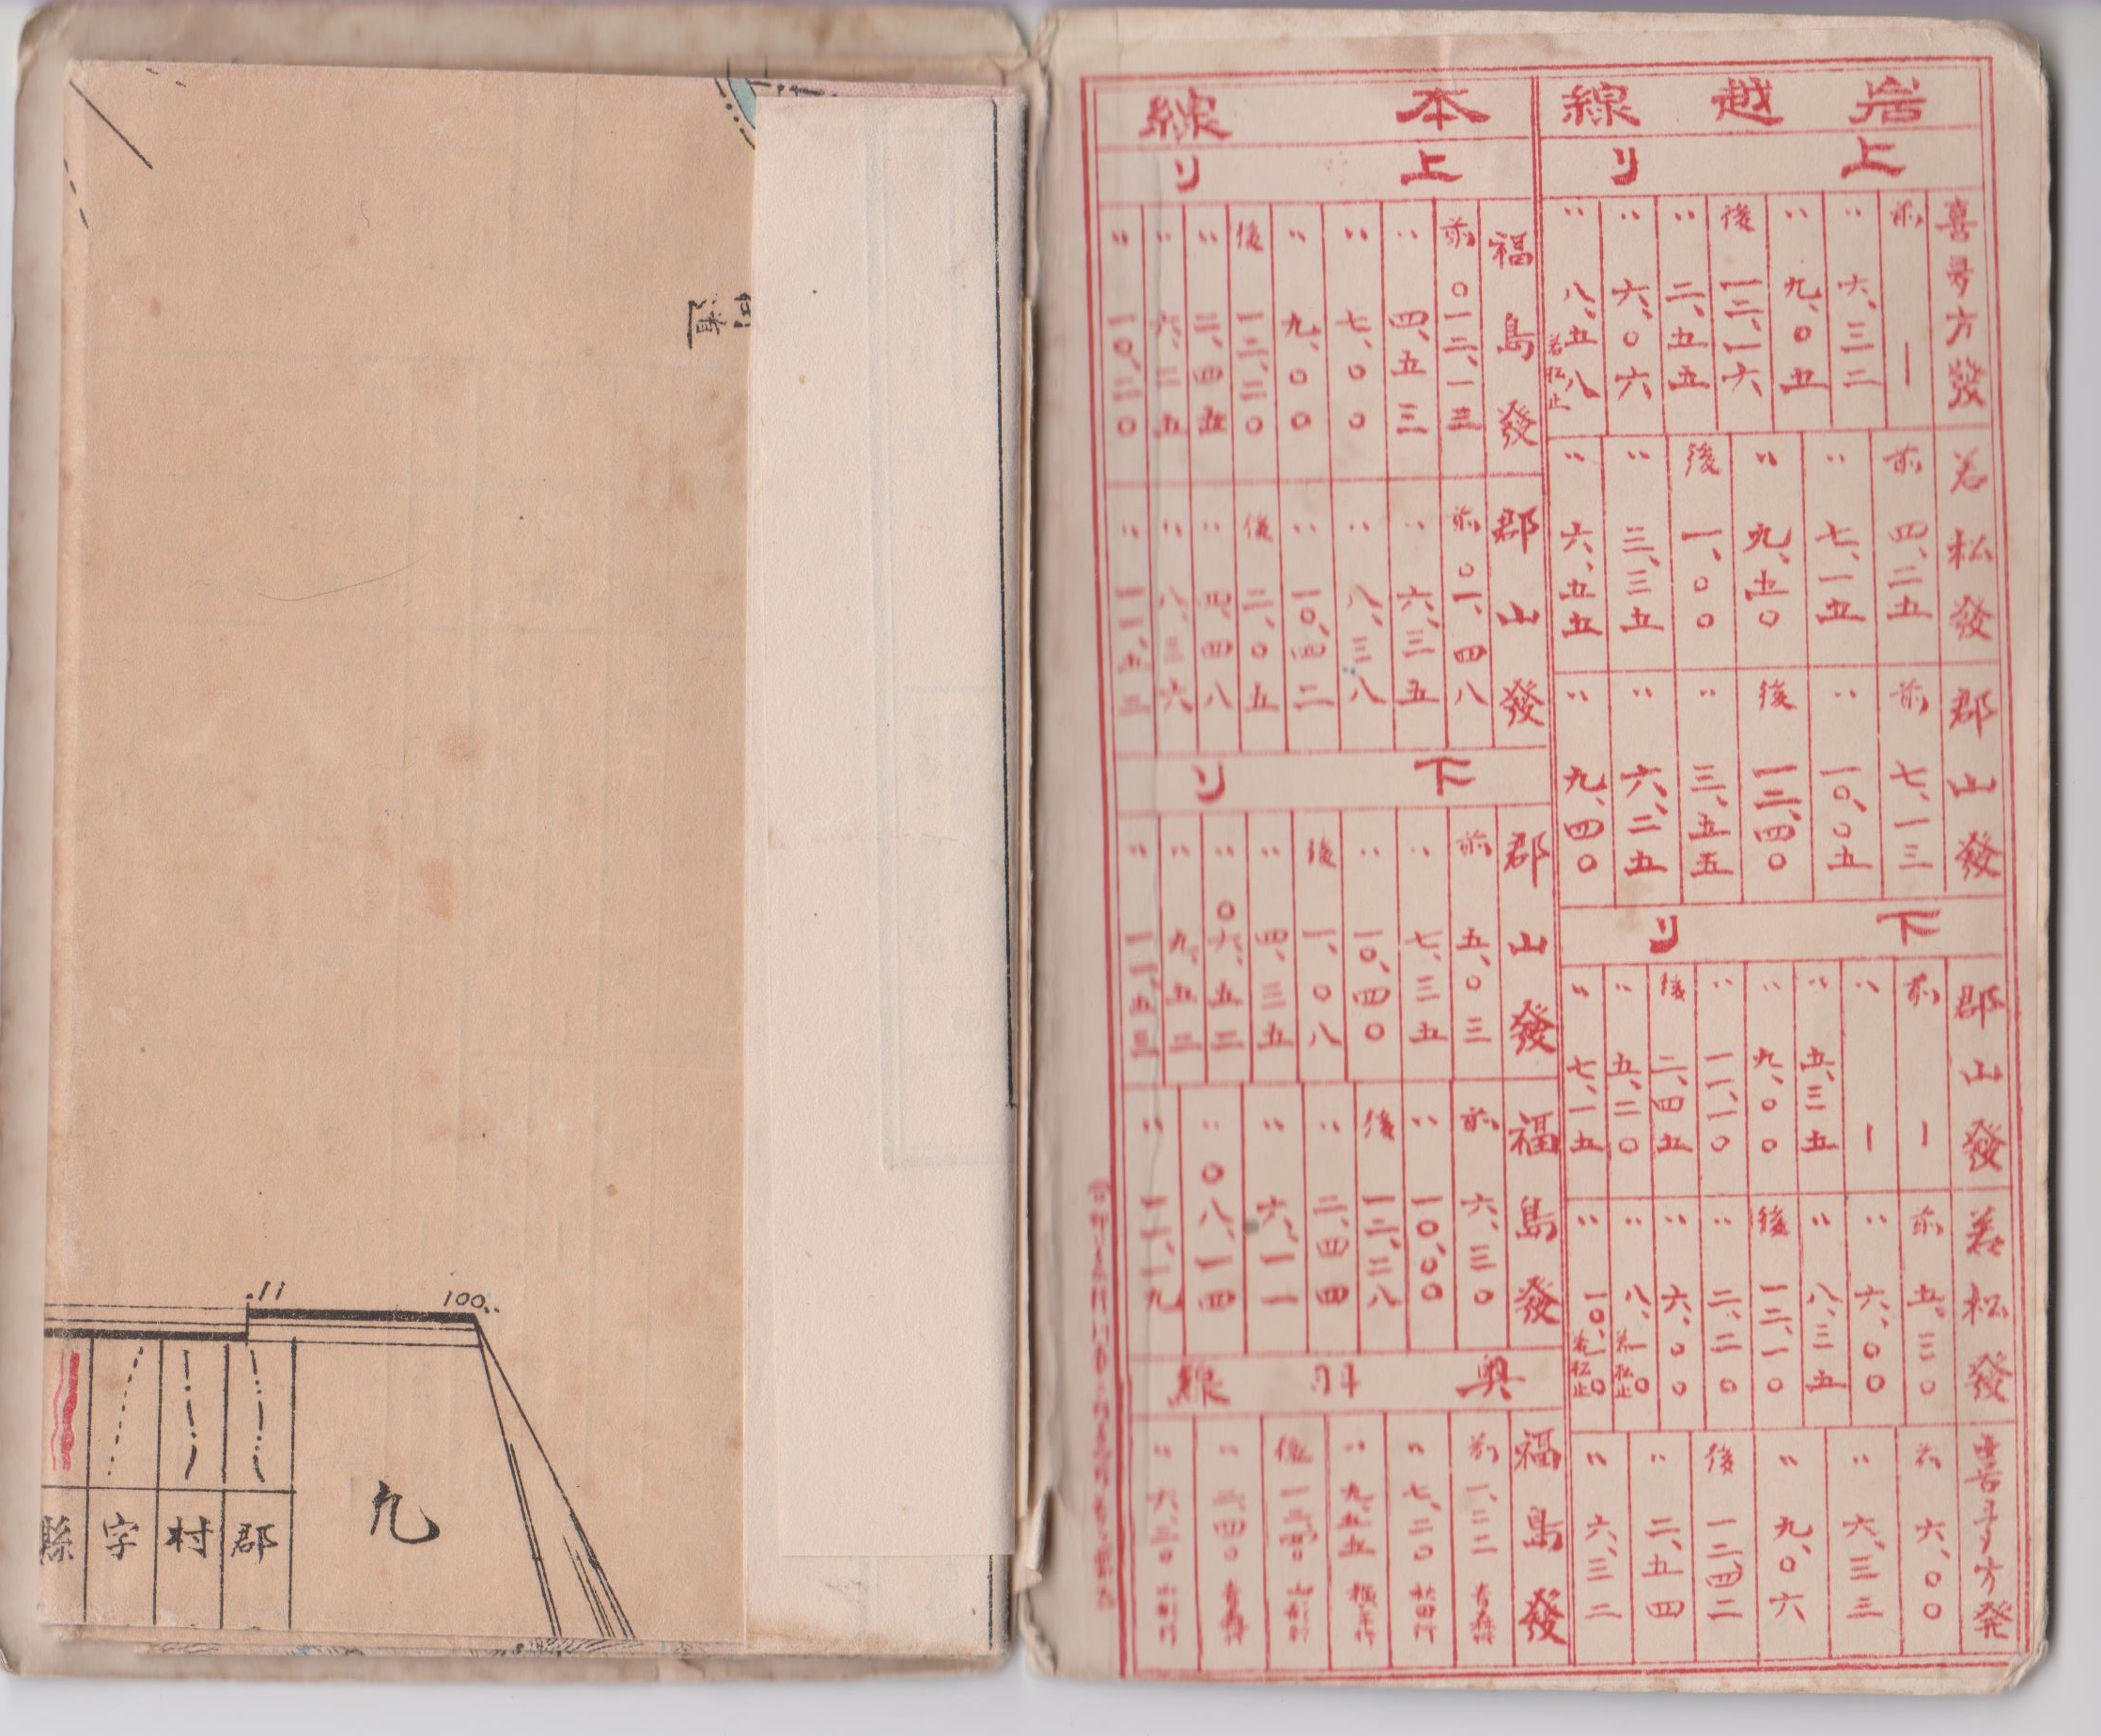 岩越線
上リ
喜多方發
前 ー
〃 六、三二
〃 九、〇五
後 一二、一六
〃 二、五五
〃 六、〇六
〃 八、五八 若松止
若松發
前 四、二五
〃 七、一五
〃 九、五〇
後 一、〇〇
〃 三、三五
〃 六、五五
郡山發
前 七、一三
〃 一〇、〇五
後 一二、四〇
〃 三、五五
〃 六、二五
〃 九、四〇
下リ
郡山發
前 ー
〃 ー
〃 五、三五
〃 九、〇〇
〃 一一、一〇
後 二、四五
〃 五、二〇
〃 七、一五
若松發
前 五、三〇
〃 六、〇〇
〃 八、三五
後 一二、一〇
〃 二、二〇
〃 六、〇〇
〃 八、一〇 若松止
〃 一〇、一〇 若松止
喜多方発
前 六、〇〇
〃 六、三三
〃 九、〇六
後 一二、四二
〃 二、五四
〃 六、三二
本線
上リ
福島發
前 〇一二、一三
〃 四、五三
〃 七、〇〇
〃 九、〇〇
後 一二、二〇
〃 二、四五
〃 六、二五
〃 一〇、二〇
郡山發
前 〇一、四八
〃 六、三五
〃 八、三八
〃 一〇、四二
後 二、〇五
〃 四、四八
〃 八、三六
〃 一一、五三
下リ
郡山發
前 五、〇三
〃 七、三五
〃 一〇、四〇
後 一、〇八
〃 四、三五
〃 〇六、五二
〃 九、五二
〃 一一、五三
福島發
前 六、三〇
〃 一〇、〇〇
後 一二、三八
〃 二、四四
〃 六、一一
〃 〇八、一四
〃 一一、一九
奥羽線
福島發
前 一、二二 青森行
〃 七、二〇 秋田行
〃 九、五五 横手行
後 一二、四〇 山形行
〃 二、四〇 青森行
〃 六、三〇 山形行
道
.11
100..
九
郡
村
字
縣